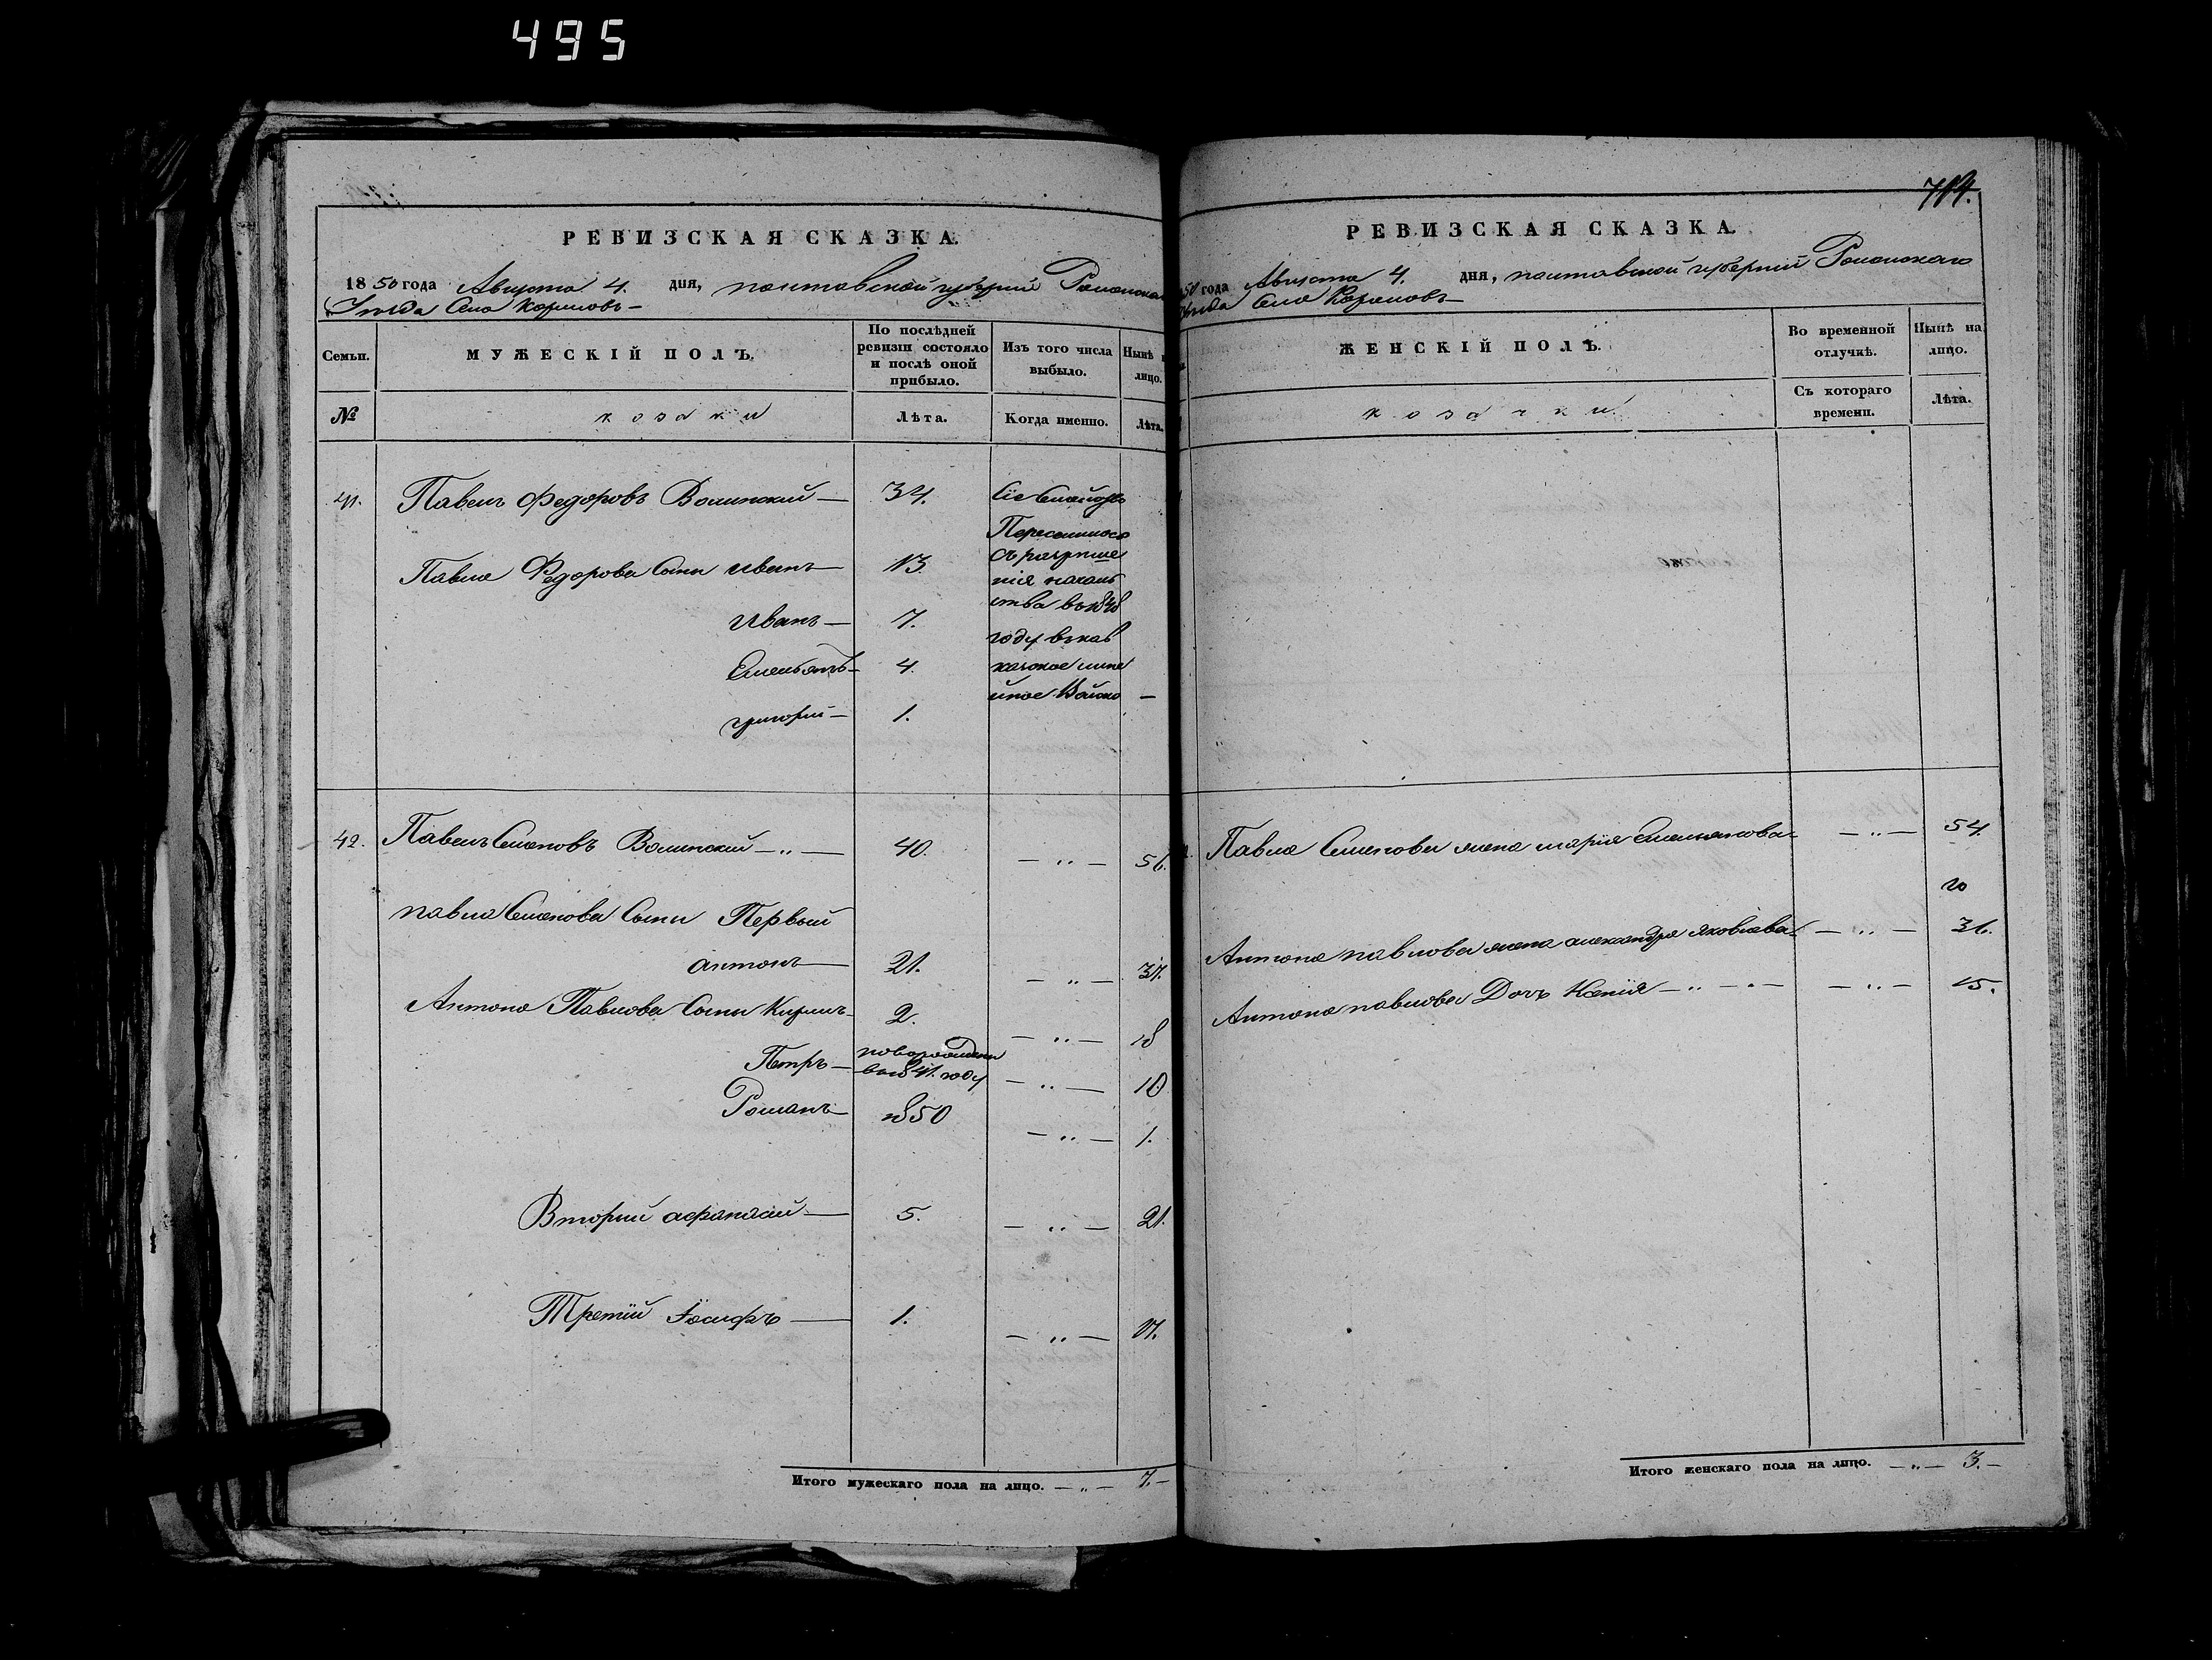 495
714.
РЕВИЗСКАЯ СКАЗКА.
1850 года Августа 4. дня, полтавской губерніи Роменскаго
Уезда Села
Семьи.
МУЖЕСКІЙ ПОЛЪ.
По послѣдней ревизіи состояло и послѣ оной прибыло.
Изъ того числа выбыло.
Нынѣ на лицо.
№
козаки
Лѣта.
Когда именно.
Лѣта.
41. Павелъ Федоровъ Волинский — 34.
Павла Федорова Сыны иванъ — 13.
Иванъ — 7.
Емельянъ — 4.
григорий — 1.
Переселился
съ разреше
ния началь
ства въ 1848
году въ кав
казкое лине
йное Войско —
42. Павелъ Семеновъ Волинский —„— 40. —„— 56.
павла Семенова Сыны Первый
антонъ — 21. —„— 37.
Антона Павлова Сыны Кирилъ 2. —„— 18
Петръ — новорожденъ
въ 1841. году —„— 10
Романъ 1850 —„— 1.
Вторый афанасий — 5. —„— 21.
Третий Іосифъ — 1. —„— 17.
Итого мужескаго пола на лицо. —„— 7.—
РЕВИЗСКАЯ СКАЗКА.
50 года Августа 4. дня, полтавской губерний Роменскаго
Уезда Села
ЖЕНСКІЙ ПОЛЪ.
Во временной отлучкѣ.
Нынѣ на лицо.
козачки
Съ котораго времени.
Лѣта.
Павла Семенова жена мария Емельянова —„— 54.
Антона павлова жена александра яковлева —„— 36.
Антона павлова Дочь Ксения —„— —„— 15.
Итого женскаго пола на лицо. —„— 3.—